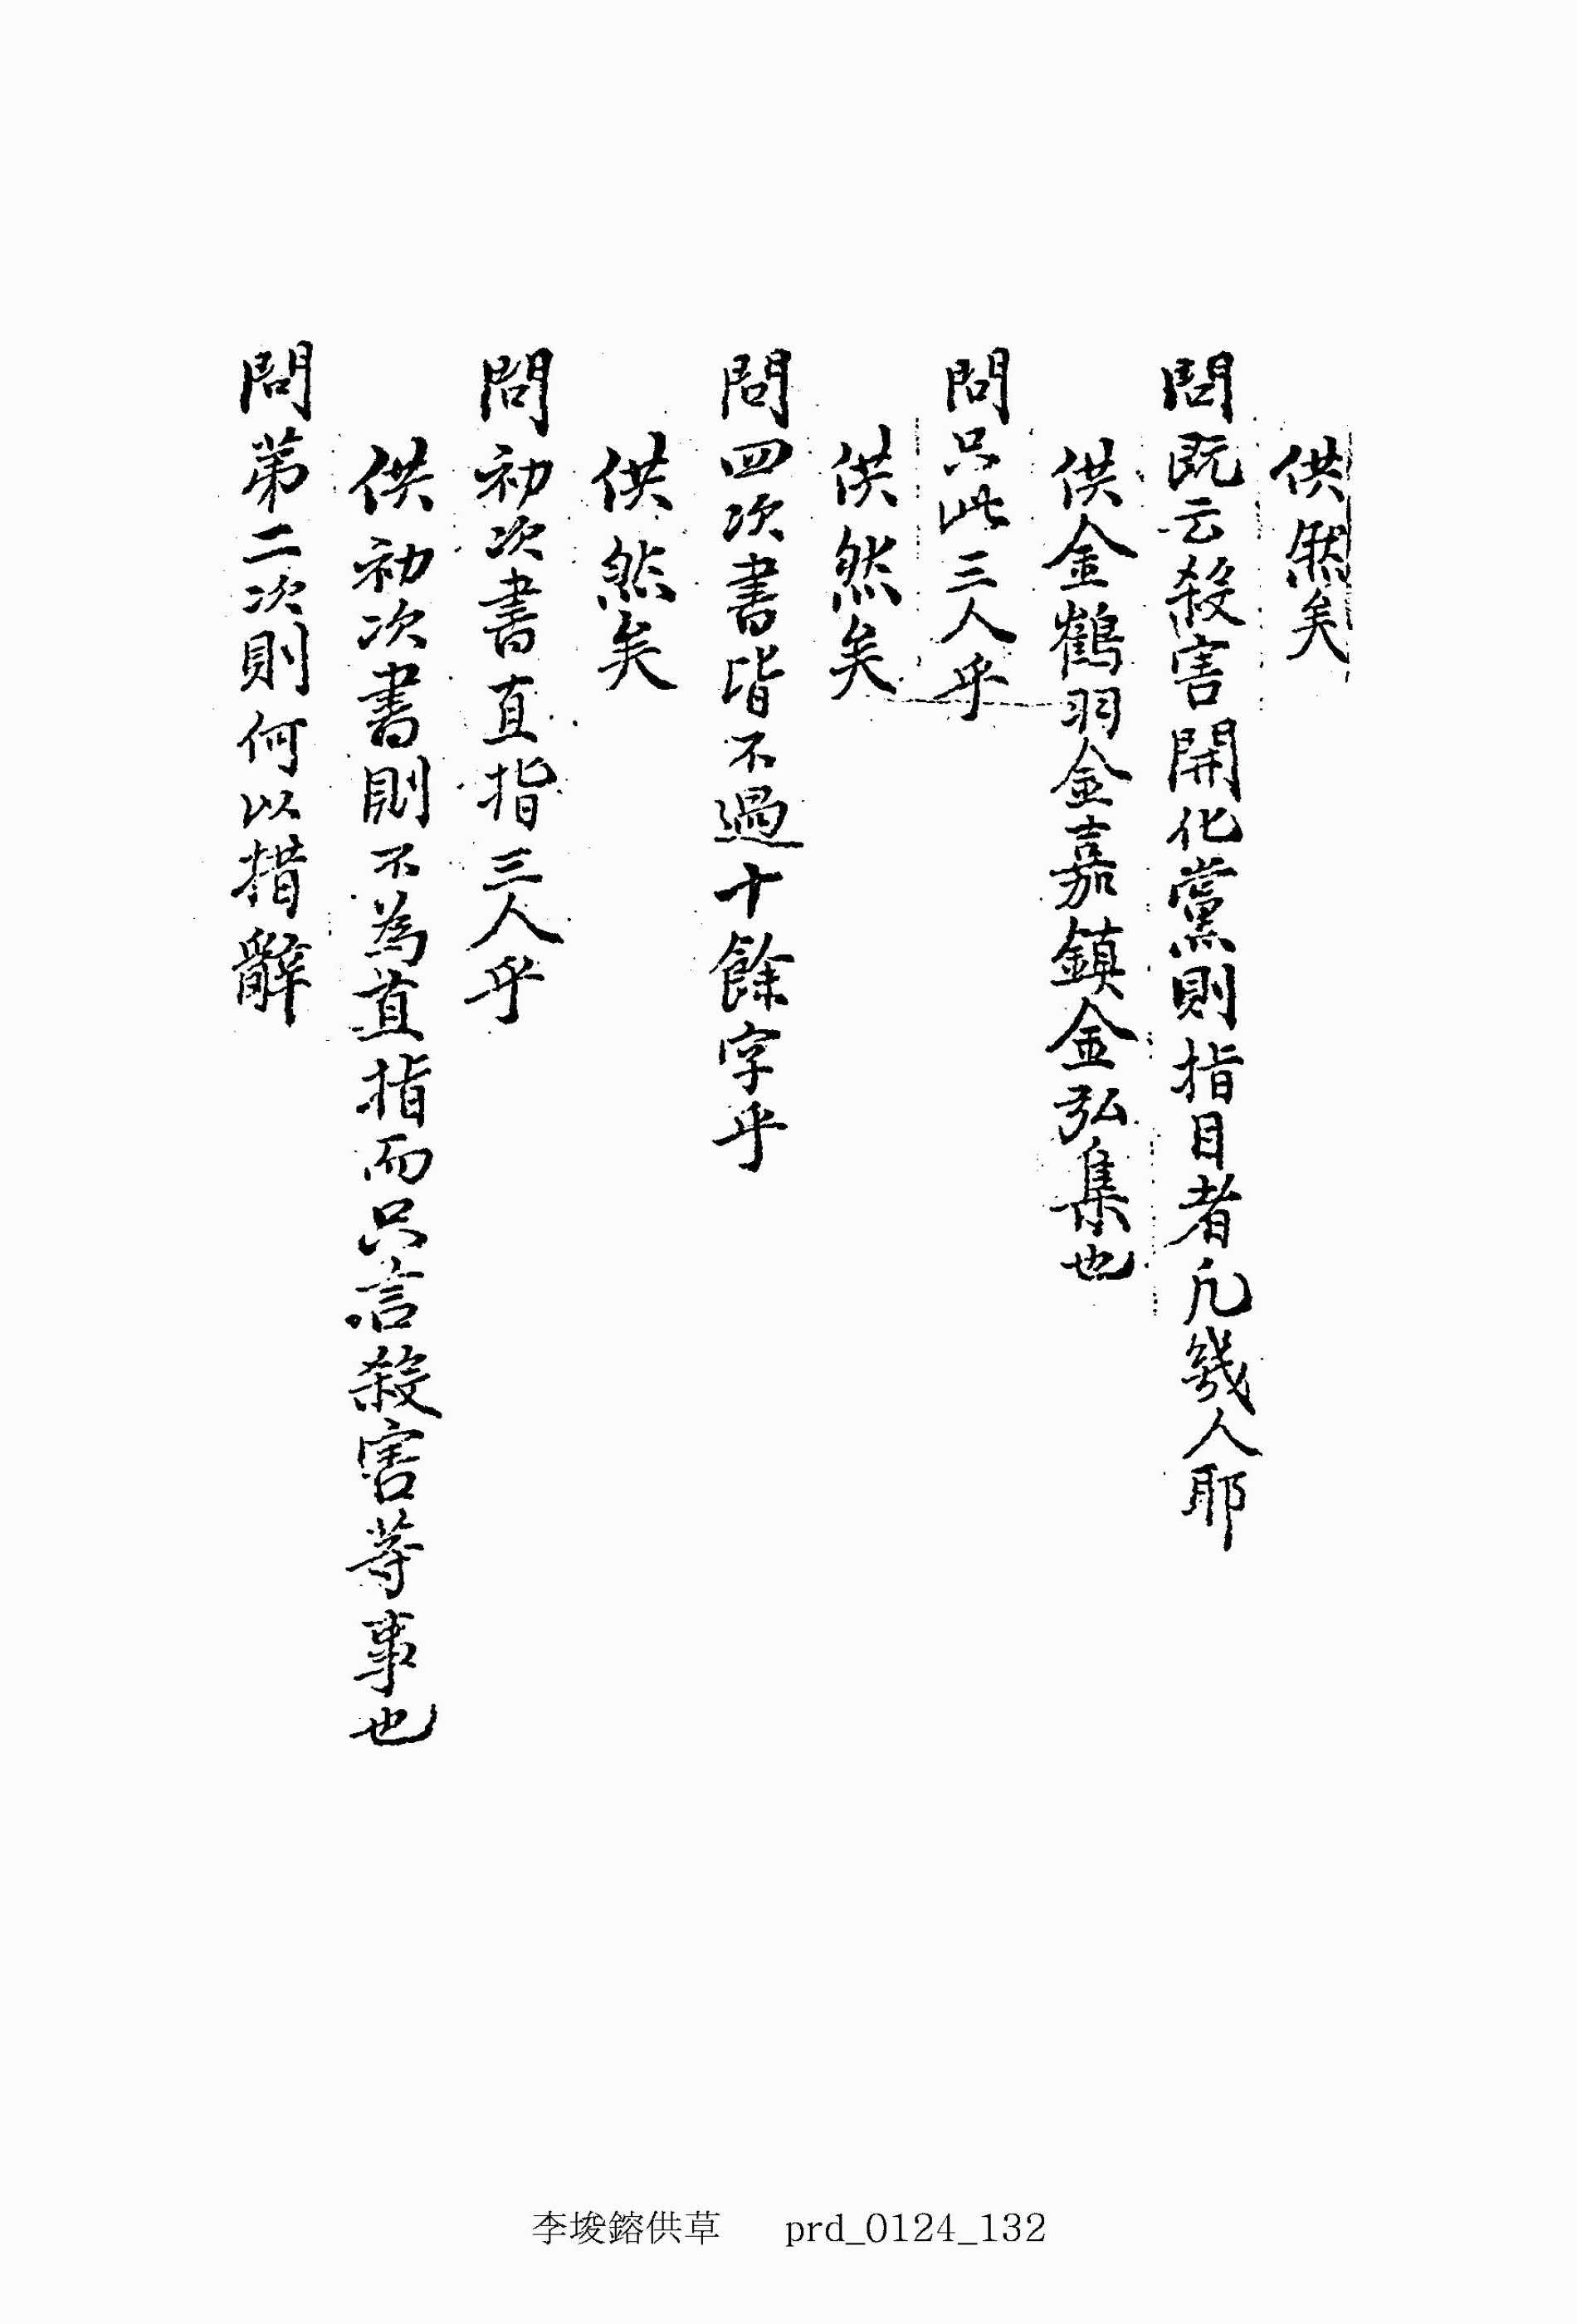 供然矣
問既云殺害開化黨則指目者凡幾人耶
供金鶴羽金嘉鎮金弘集也
問只此三人乎
供然矣
問四次書皆不過十餘字乎
供然矣
問初次書直指三人乎
供初次書則不為直指而只言殺害等事也
問第二次則何以措辭
李埈鎔供草 prd_0124_132